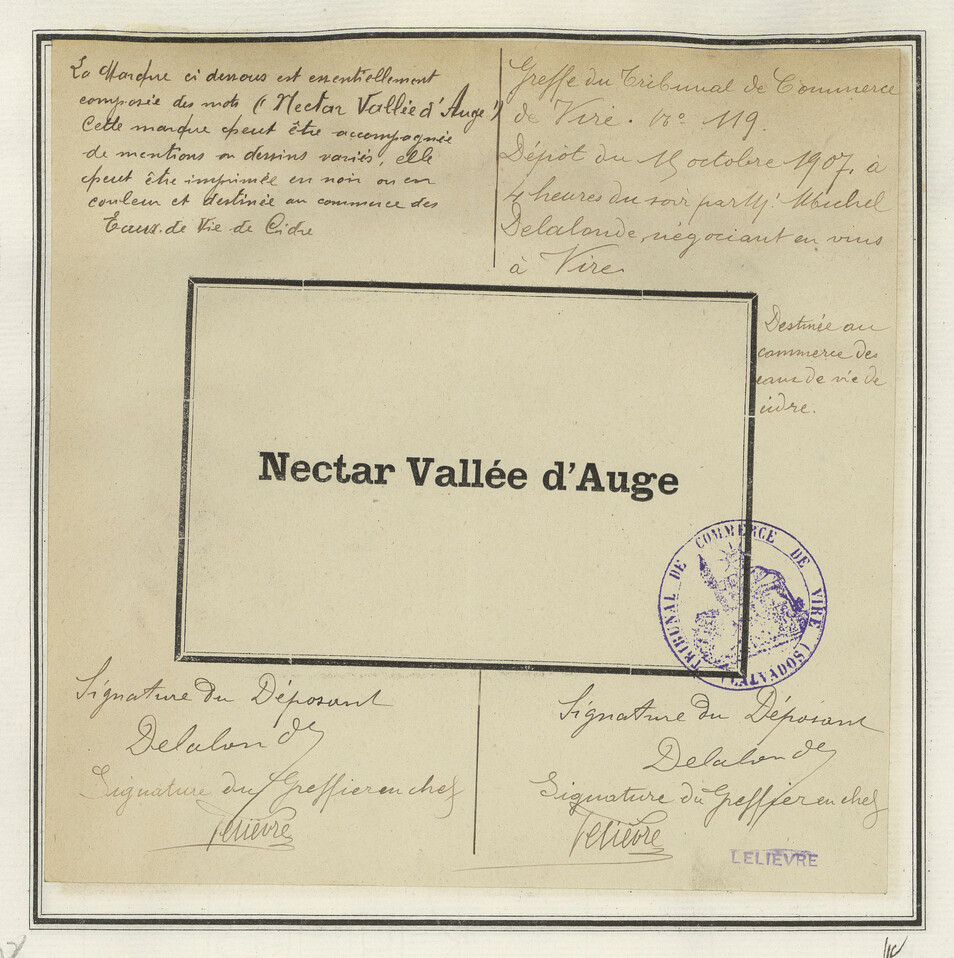 La Marque ci dessous est essentiellement
composée des mots ("Nectar Vallée d'Auge")
Cette marque peut être accompagnée
de mentions ou dessins variés, elle
peut être imprimée en noir ou en
couleur et destinée au commerce des
Eaux de Vie de Cidre
Greffe du Tribunal de Commerce
de Vire. No 119.
Dépôt du 15 octobre 1907, à
4 heures du soir par Mr. Michel
Delalonde, négociant en vins
à Vire
Destinée au
commerce des
eaux de vie de
cidre.
Nectar Vallée d'Auge
TRIBUNAL DE COMMERCE DE VIRE (CALVADOS)
Signature du Déposant
Delalonde
Signature du Greffier en chef
Lelièvre
Signature du Déposant
Delalonde
Signature du Greffier en chef
Lelièvre
LELIÈVRE